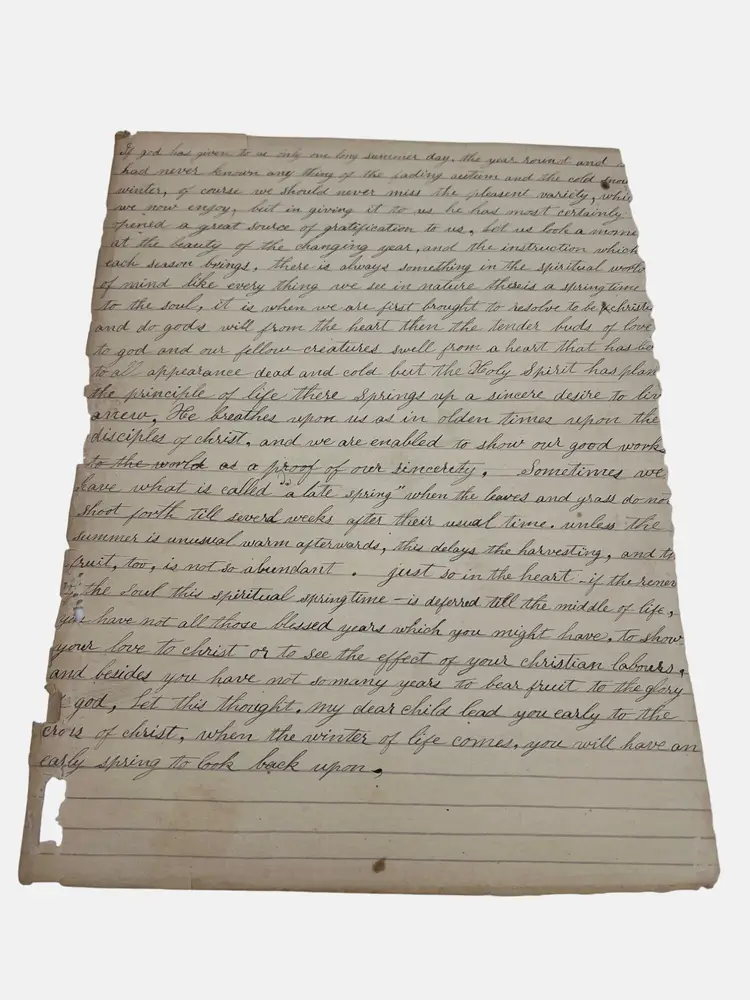 If god has given to us only one long summer day, the year round and
had never known any thing of the fading autum and the cold snow
winter, of course we should never miss the pleasent variety, whi
we now enjoy, but in giving it to us he has most certainly
opened a great source of gratification to us, Let us look a mome
at the beauty of the changing year, and the instruction which
each season brings, there is always something in the spiritual world
of mind like every thing we see in nature there is a springtime
to the soul, it is when we are first brought to resolve to be christi
and do gods will from the heart then the tender buds of love
to god and our fellow creatures swell from a heart that has be
to all appearance dead and cold but the Holy Spirit has plan
the principle of life there springs up a sincere desire to liv
anew, He breathes upon us as in olden times upon the
disciples of christ, and we are enabled to show our good works
to the world as a proof of our sincerety. Sometimes we
have what is called "a late spring" when the leaves and grass do not
shoot forth till severl weeks after their usual time. unless the
summer is unusual warm afterwards, this delays the harvesting, and th
fruit, too, is not so abundant. just so in the heart - if the renew
the soul this spiritual springtime - is deferred till the middle of life,
you have not all those blessed years which you might have, to show
your love to christ or to see the effect of your christian labours,
and besides you have not so many years to bear fruit to the glory
god, Let this thought, my dear child lead you early to the
cross of christ, when the winter of life comes, you will have an
early spring to look back upon.